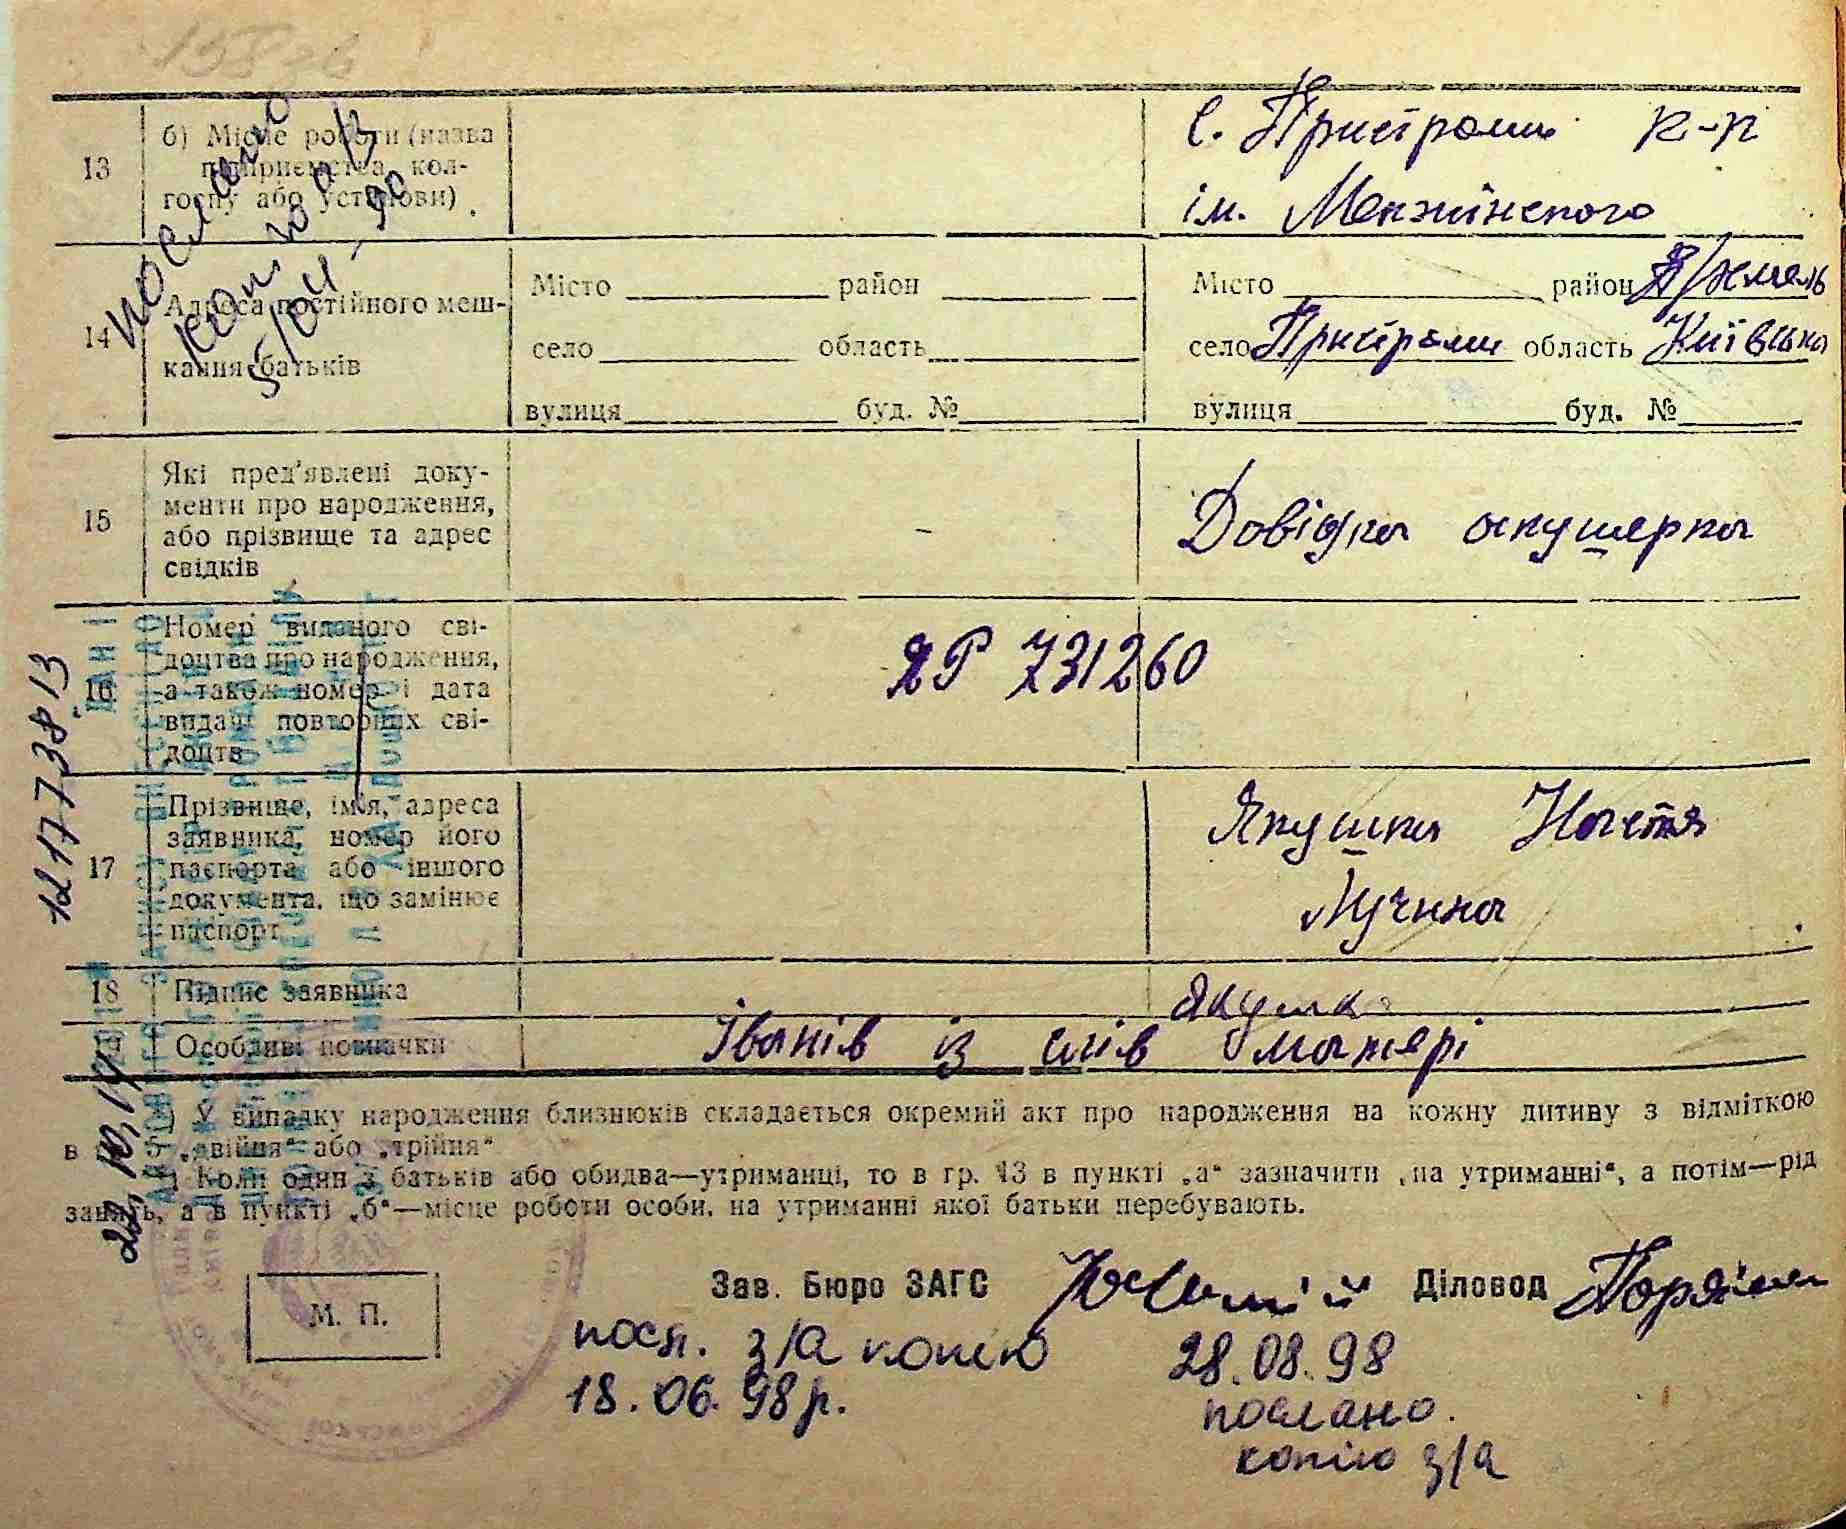 13
б) Місце роботи (назва
підприємства, кол-
госпу або установи)
с. Пристроми к-п
ім. Менжінского
послано
копію з/а
5/04-90
14
Адреса постійного меш-
кання батьків
Місто район
село область
вулиця буд. №
Місто район П/Хмель
село Пристроми область Київська
вулиця буд. №
15
Які пред'явлені доку-
менти про народження,
або прізвище та адрес
свідків
Довідка акушерка
16
Номер виданого сві-
доцтва про народження,
а також номер і дата
видачі повторних сві-
доцтв
ЯР 731260
17
Прізвище, ім'я, адреса
заявника, номер його
паспорта або іншого
документа, що замінює
паспорт
Якушка Настя
Лучина
18 Підпис заявника
Якушка
19 Особливі позначки
Іванів із слів матері
1217738.13
) У випадку народження близнюків складається окремий акт про народження на кожну дитину з відміткою
в 5 „двійня“ або „трійня“
) Коли один з батьків або обидва—утриманці, то в гр. 13 в пункті „а“ зазначити „на утриманні“, а потім—рід
занять, а в пункті „б“—місце роботи особи, на утриманні якої батьки перебувають.
М. П.
Зав. Бюро ЗАГС
Діловод
посл. з/а копію
18.06.98р.
28.08.98
послано.
копію з/а